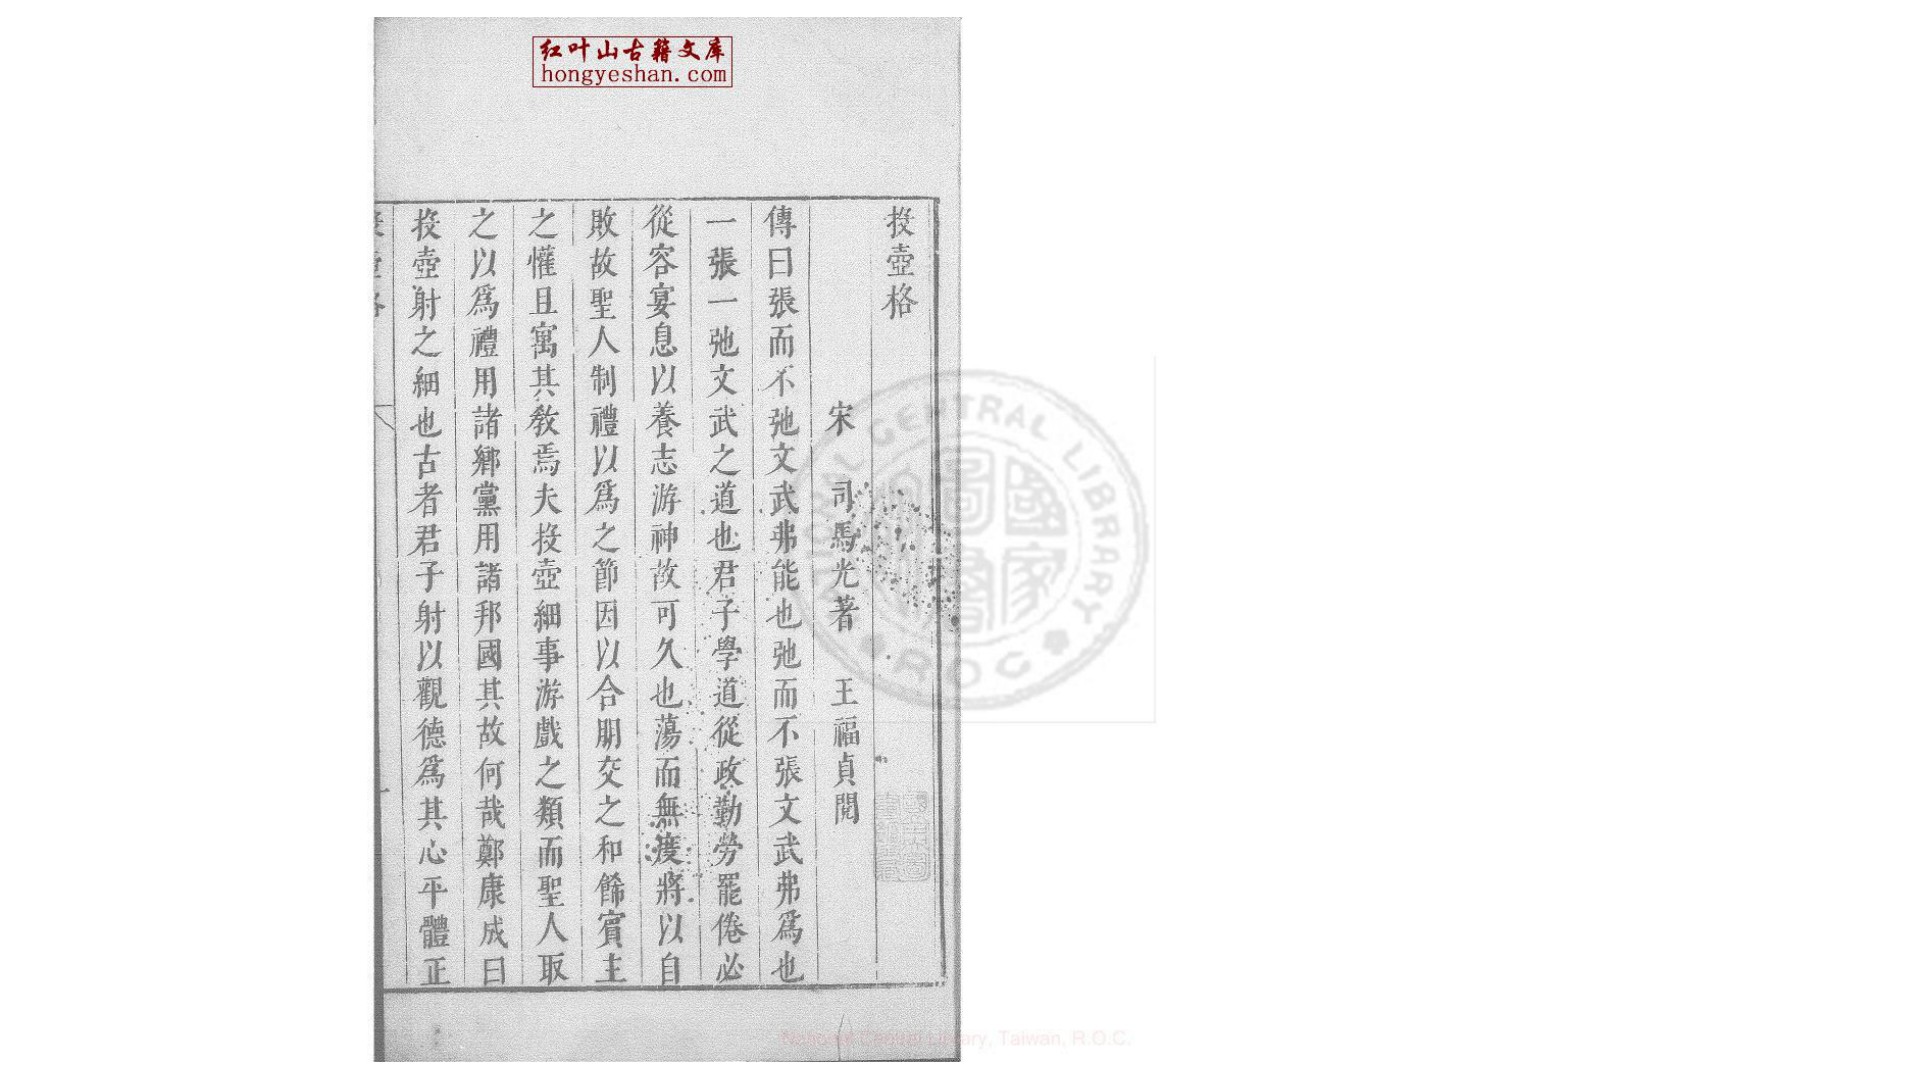 红叶山古籍文库
hongyeshan.com
投壺格
宋 司馬光著 王福貞閱
傳曰張而不弛文武弗能也弛而不張文武弗爲也
一張一弛文武之道也君子學道從政勤勞罷倦必
從容宴息以養志游神故可久也蕩而無度將以自
敗故聖人制禮以爲之節因以合朋交之和餙賓主
之懽且寓其敎焉夫投壺細事游戲之類而聖人取
之以爲禮用諸鄉黨用諸邦國其故何哉鄭康成曰
投壺射之細也古者君子射以觀德爲其心平體正
NATIONAL CENTRAL LIBRARY
R.O.C
國家圖書
National Central Library, Taiwan, R.O.C.